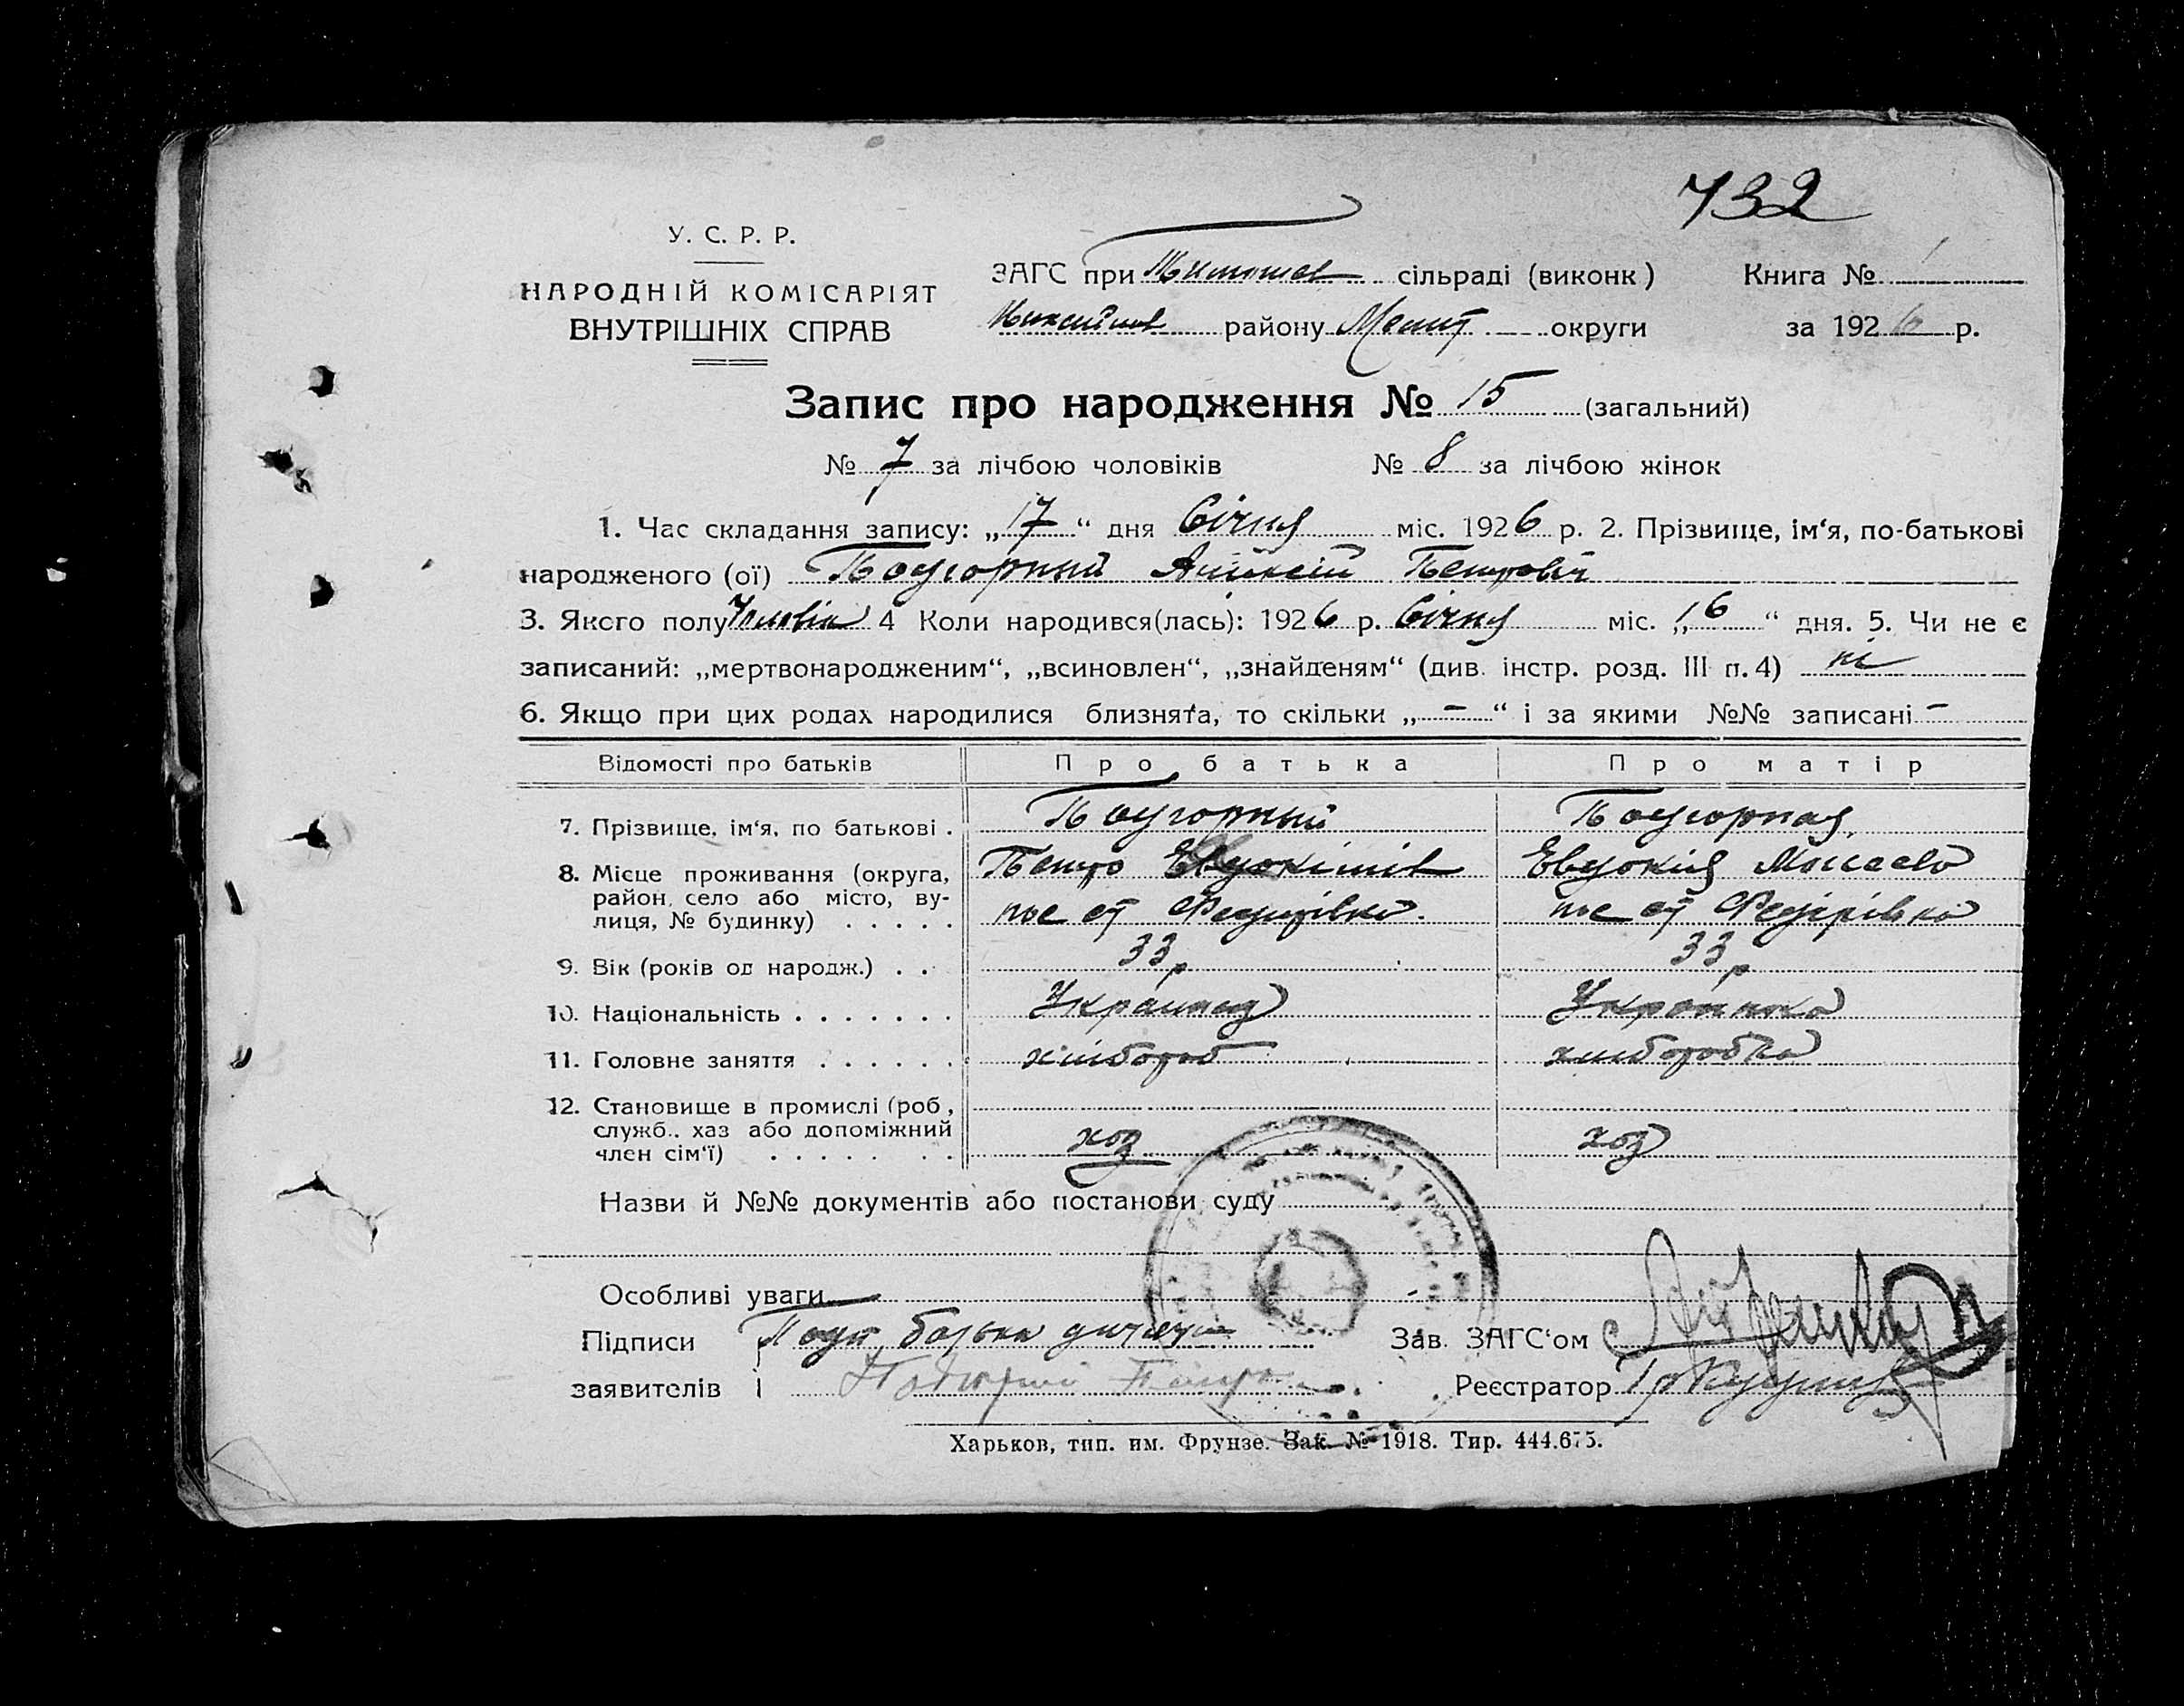 732
У. С. Р. Р.
НАРОДНІЙ КОМІСАРІЯТ
ВНУТРІШНІХ СПРАВ
ЗАГС при сільраді (виконк)
району Меліт округи
Книга № 1
за 1926 р.
Запис про народження № 15 (загальний)
№ 7 за лічбою чоловіків № 8 за лічбою жінок
1. Час складання запису: „17“ дня Січня міс. 1926 р. 2. Прізвище, ім‘я, по-батькові
народженого (ої) Подгорный Алексій Петрович
3. Якого полу Чоловік 4 Коли народився(лась): 1926 р. Січня міс. „6“ дня. 5. Чи не є
записаний: „мертвонародженим“, „всиновлен“, „знайденям“ (див. інстр. розд. III п. 4) ні
6. Якщо при цих родах народилися близнята, то скільки „-“ і за якими №№ записані -
Відомості про батьків Про батька Про матір
7. Прізвище, ім‘я, по батькові . Подгорный Подгорная
Петро Евдокімів Евдокия Мосеева
8. Мієце проживання (округа, район, село або місто, вулиця, № будинку) . . . . . Федорівка. Федірівка
9. Вік (років од народж.) . . 33 р 33 р
10. Національність . . . . . . . Українец Українка
11. Головне заняття . . . . . . хлібороб хлиборобка
12. Становище в промислі (роб, служб., хаз або допоміжний член сім‘ї) . . . . . . . . хоз хоз
Назви й №№ документів або постанови суду
Особливі уваги
Підписи батька дитячи Зав. ЗАГС‘ом
заявителів Подгорний Петро Реєстратор
Харьков, тип. им. Фрунзе. Зак. № 1918. Тир. 444.675.